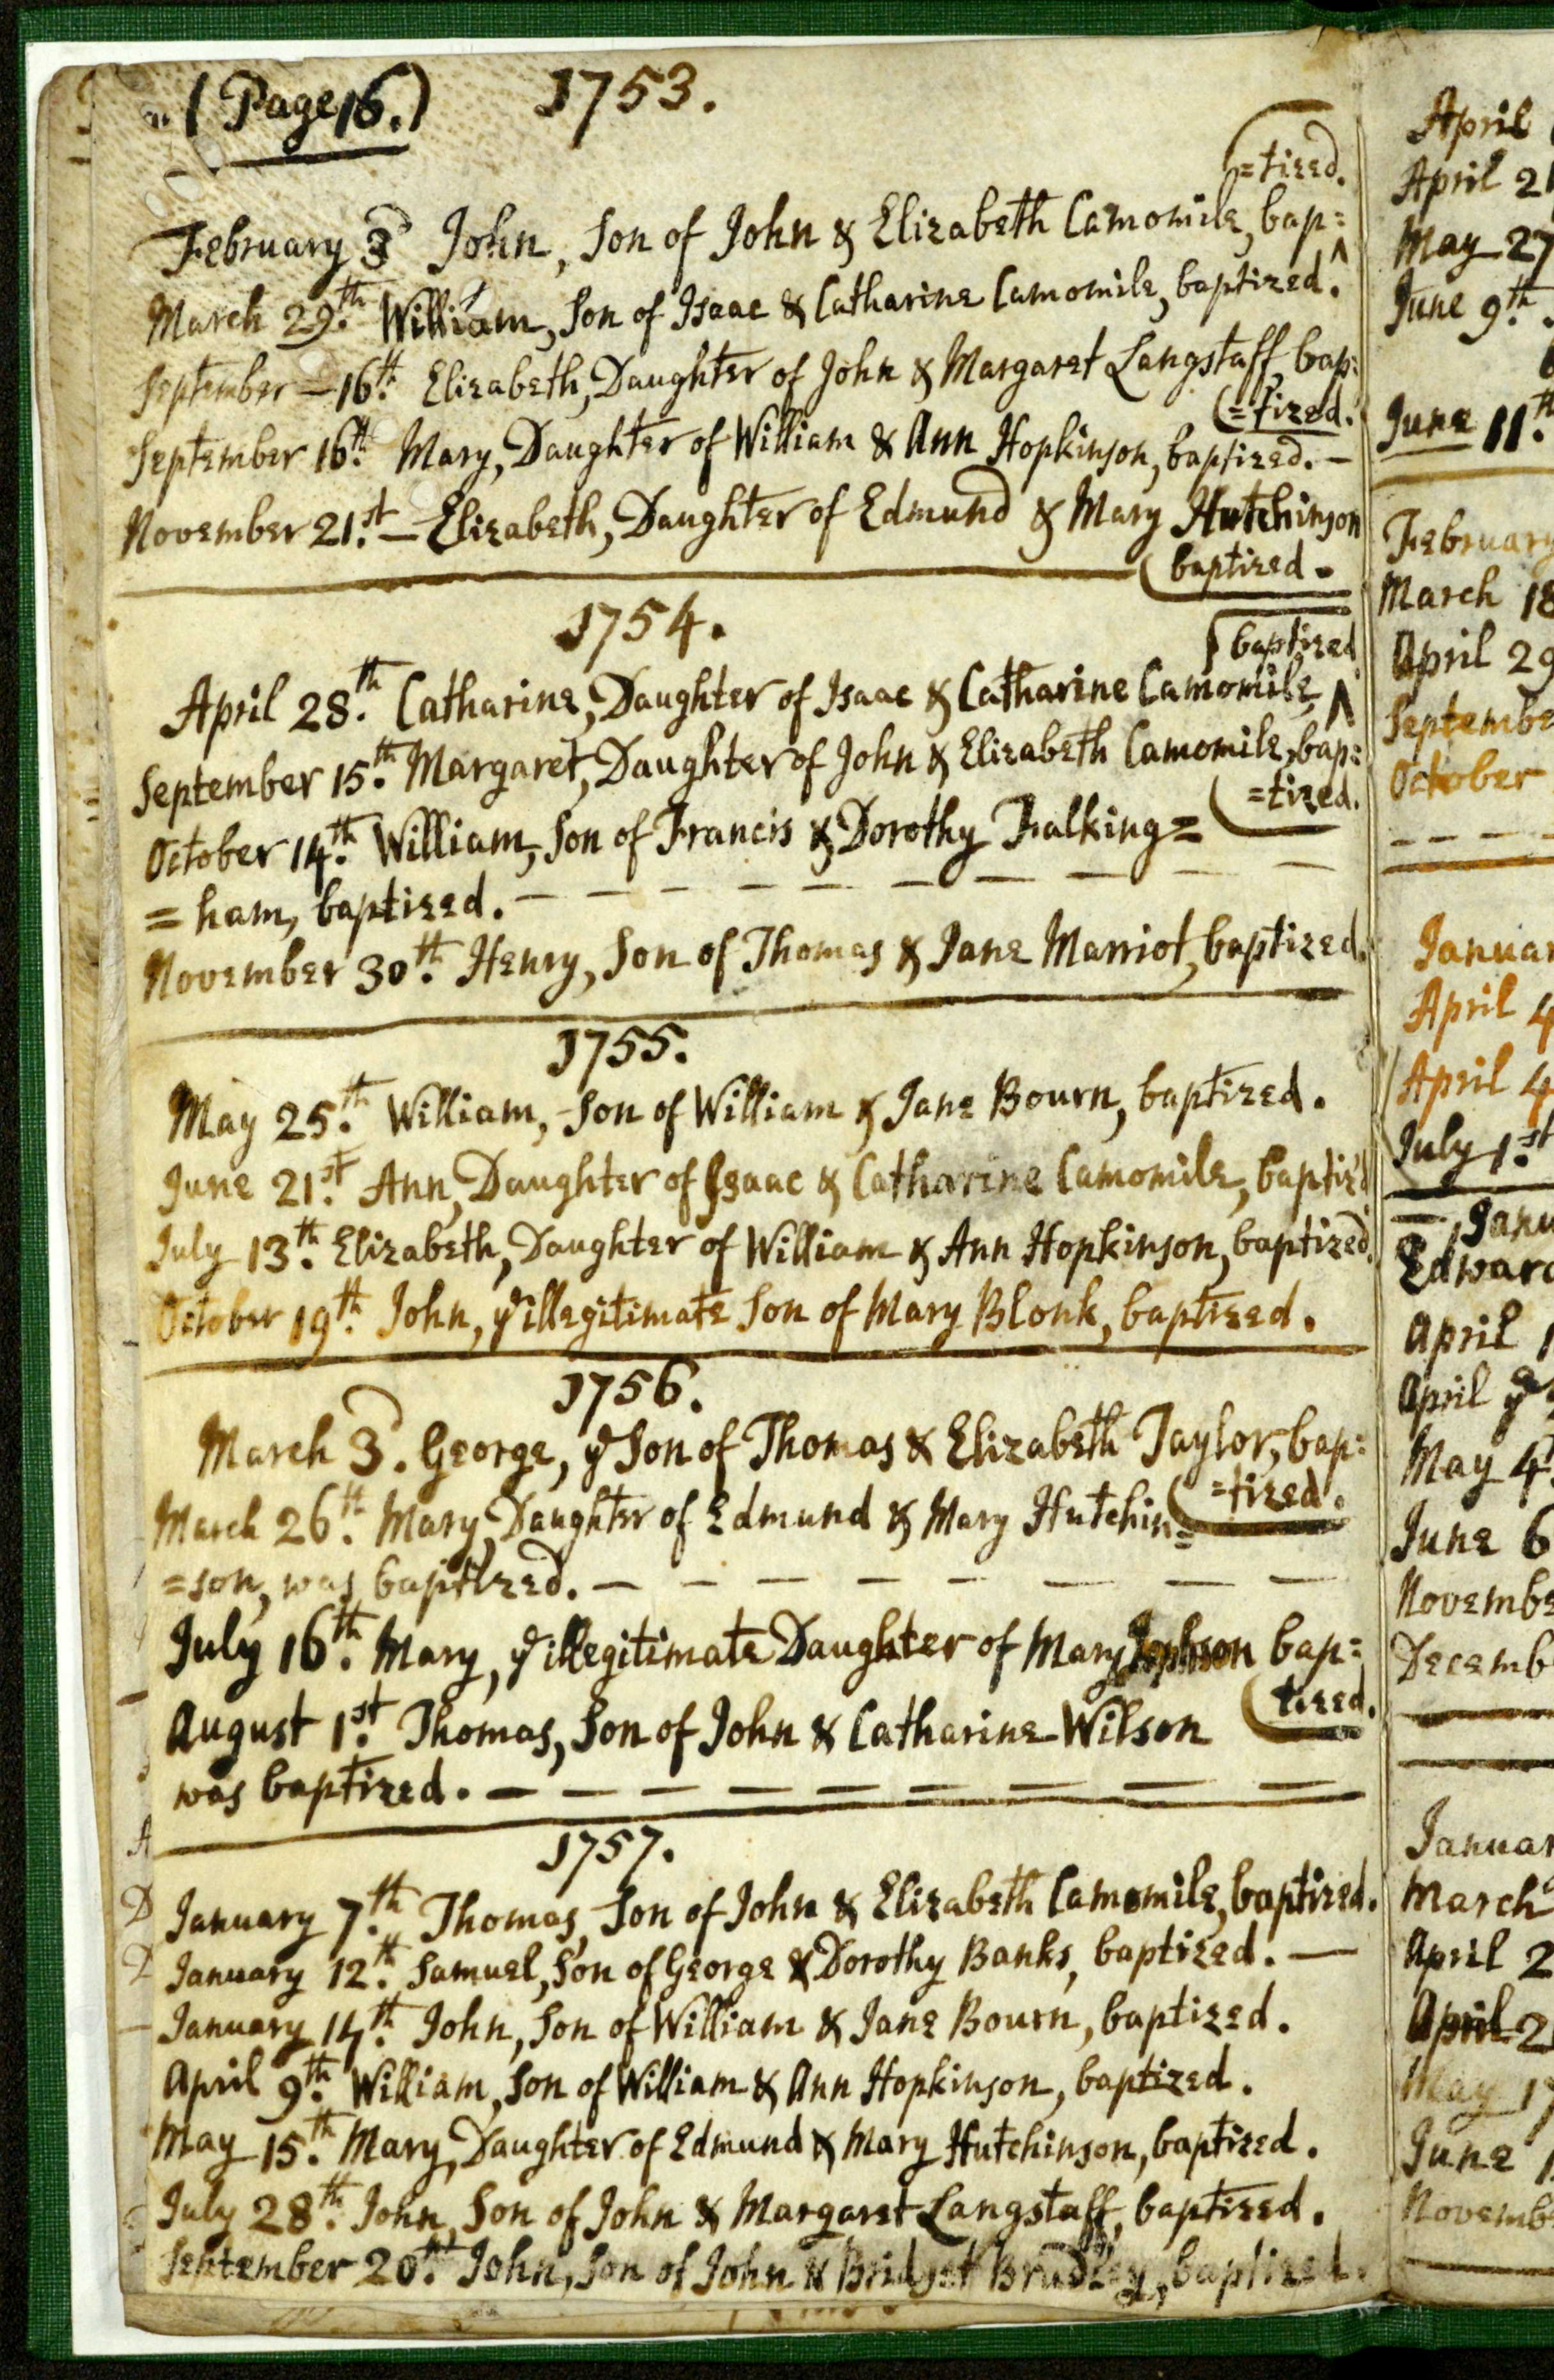 (Page 16.) 1753.
(=tized.
February 3d John, Son of John & Elizabeth Camomile, bap= ^
March 29.th William, Son of Isaac & Catharine Camomile, baptized.
September — 16.th Elizabeth, Daughter of John & Margaret Langstaff, bap=
(=tized.
September 16.th Mary, Daughter of William & Ann Hopkinson, baptized. —
November 21.st — Elizabeth, Daughter of Edmund & Mary Hutchinson
(baptized.
1754.
(baptized
April 28.th Catharine, Daughter of Isaac & Catharine Camomile, ^
September 15.th Margaret, Daughter of John & Elizabeth Camomile, bap=
(=tized.
October 14.th William, Son of Francis & Dorothy Falking=
=ham, baptized. — — — — — — — — —
November 30.th Henry, Son of Thomas & Jane Marriot, baptized.
1755.
May 25.th William, Son of William & Jane Bourn, baptized.
June 21.st Ann, Daughter of Isaac & Catharine Camomile, baptiz'd
July 13.th Elizabeth, Daughter of William & Ann Hopkinson, baptized.
October 19.th John, ye illegitimate Son of Mary Blonk, baptized.
1756.
March 3d. George, ye Son of Thomas & Elizabeth Taylor, bap=
(=tized.
March 26.th Mary, Daughter of Edmund & Mary Hutchin=
=son, was baptized. — — — — — — — —
July 16.th Mary, ye illegitimate Daughter of Mary Jephson bap=
(tized.
August 1.st Thomas, Son of John & Catharine Wilson
was baptized. — — — — — — — — —
1757.
January 7.th Thomas, Son of John & Elizabeth Camomile, baptized.
January 12.th Samuel, Son of George & Dorothy Banks, baptized. —
January 14.th John, Son of William & Jane Bourn, baptized.
April 9.th William, Son of William & Ann Hopkinson, baptized.
May 15.th Mary, Daughter of Edmund & Mary Hutchinson, baptized.
July 28.th John, Son of John & Margaret Langstaff, baptized.
September 20.th John, Son of John & Bridget Bradley, baptized.
April
April 21
May 27
June 9th.
June 11.th
February
March 18
April 29
Septembe
October
Januar
April 4
April 4
July 1.st
Janu
Edward
April 1
April
May 4
June 6
Novembe
Decemb
Januar
March
April 2
April 2
May 17
June 1
Novemb